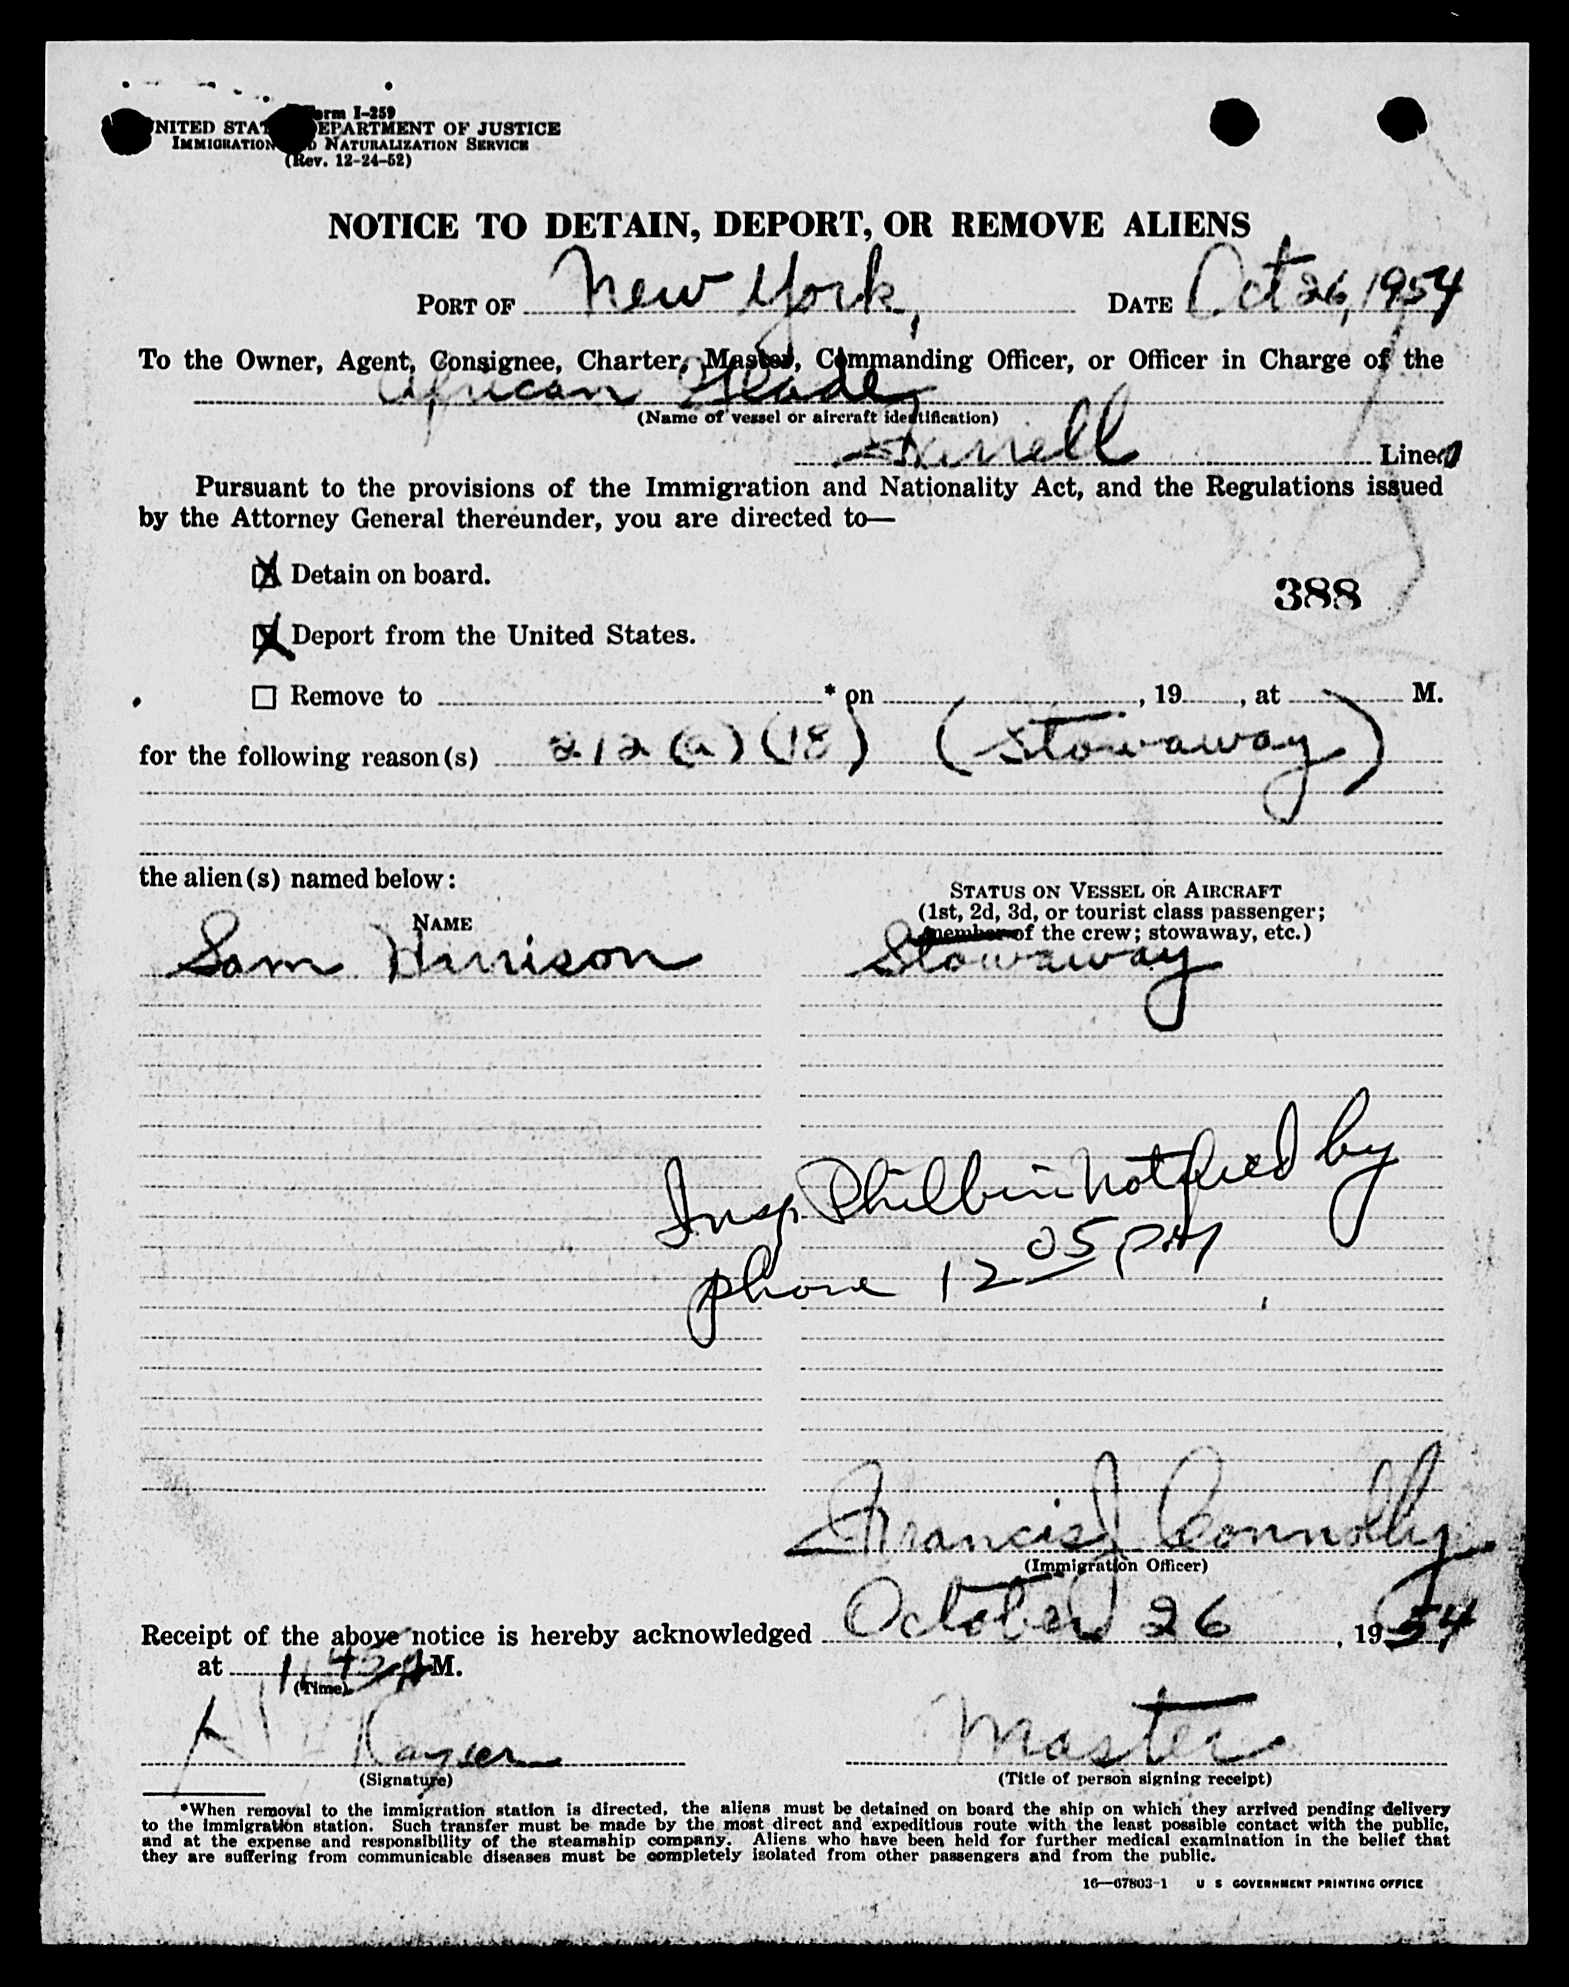 Form I-259
UNITED STATES DEPARTMENT OF JUSTICE
IMMIGRATION AND NATURALIZATION SERVICE
(Rev. 12-24-52)
NOTICE TO DETAIN, DEPORT, OR REMOVE ALIENS
PORT OF New York, DATE Oct 26, 1954
To the Owner, Agent, Consignee, Charter, Master, Commanding Officer, or Officer in Charge of the
African Glade
(Name of vessel or aircraft identification)
Farrell Line
Pursuant to the provisions of the Immigration and Nationality Act, and the Regulations issued
by the Attorney General thereunder, you are directed to—
☒ Detain on board.
388
☒ Deport from the United States.
☐ Remove to * on , 19 , at M.
for the following reason(s) 212(a)(18) (Stowaway)
the alien(s) named below:
STATUS ON VESSEL OR AIRCRAFT
(1st, 2d, 3d, or tourist class passenger;
member of the crew; stowaway, etc.)
NAME
Sam Stowaway
Insp Philbin notified by
phone 12 05 PM
Francis J Connolly
(Immigration Officer)
Receipt of the above notice is hereby acknowledged October 26, 1954
at M.
(Time)
Master
(Signature) (Title of person signing receipt)
*When removal to the immigration station is directed, the aliens must be detained on board the ship on which they arrived pending delivery
to the immigration station. Such transfer must be made by the most direct and expeditious route with the least possible contact with the public,
and at the expense and responsibility of the steamship company. Aliens who have been held for further medical examination in the belief that
they are suffering from communicable diseases must be completely isolated from other passengers and from the public.
16—67803-1 U S GOVERNMENT PRINTING OFFICE